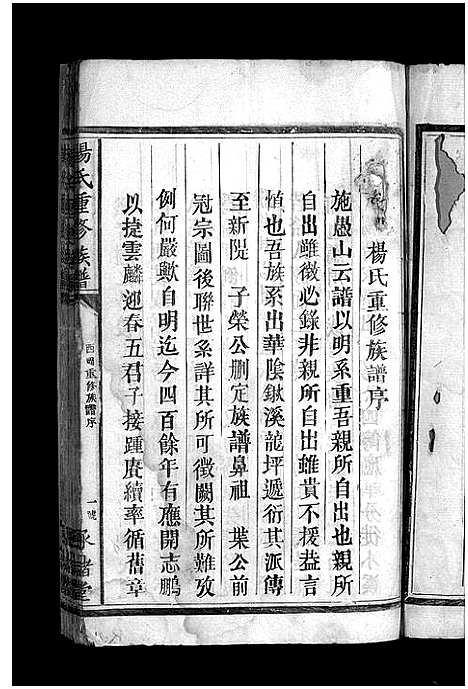 楊氏重修族譜序
施愚山云譜以明系重吾親所自出也親所
自出雖微必錄非親所自出雖貴不援葢言
慎也吾族系出華陰鍬溪龍坪遞衍其派傳
至新隄 子榮公刪定族譜鼻祖 葉公前
冠宗圖後聯世系詳其所可徵闕其所難攷
例何嚴歟自明迄今四百餘年有應開志鵬
以捷雲麟迎春五君子接踵賡續率循舊章
楊氏重修族譜
重修族譜序
一號
承緒堂